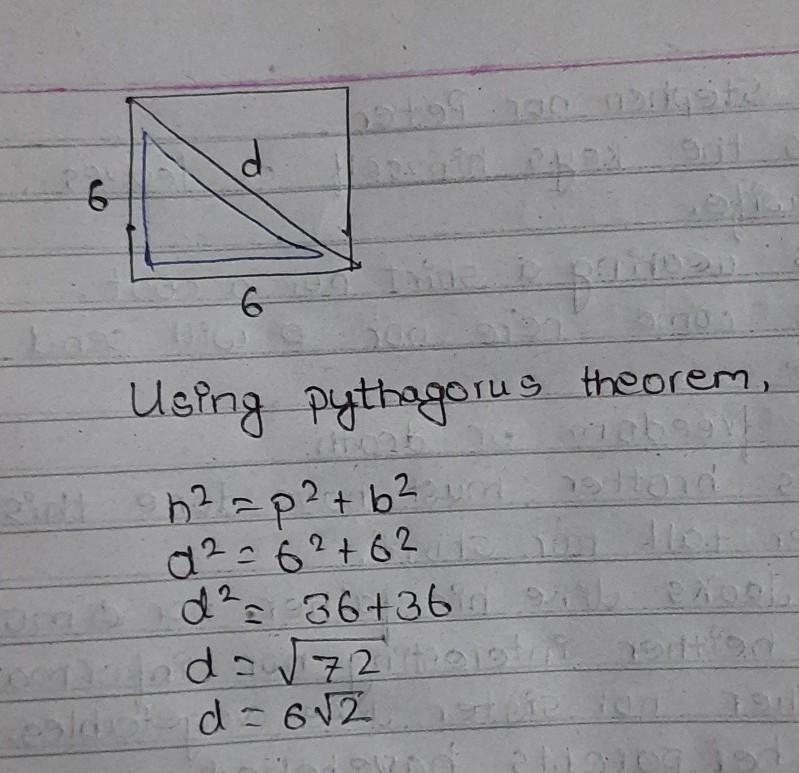 d
6
6
Using pythagorus theorem,
h² = p² + b²
d² = 6² + 6²
d² = 36 + 36
d = √72
d = 6√2